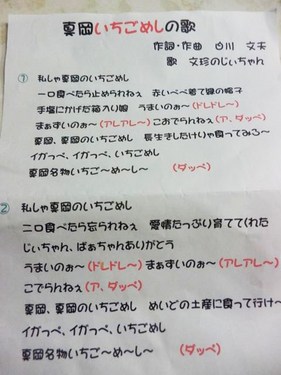 真岡いちごめしの歌
作詞・作曲 白川 文夫
歌 文珍のじぃちゃん
①
私しゃ真岡のいちごめし
一口食べたら止められねぇ 赤いべべ着て緑の帽子
手塩にかけた箱入り娘 うまいのぉ～(ドレドレ～)
まぁずいのぉ～(アレアレ～)こおでらんねぇ(ア、ダッペ)
真岡、真岡のいちごめし 長生きしたけりゃ食ってみろ～
イガっぺ、イガっぺ、いちごめし
真岡名物いちご～め～し～ (ダッペ)
②
私しゃ真岡のいちごめし
二口食べたら忘られねぇ 愛情たっぷり育ててくれた
じいちゃん、ばぁちゃんありがとう
うまいのぉ～(ドレドレ～)まぁずいのぉ～(アレアレ～)
こでらんねぇ(ア、ダッペ)
真岡、真岡のいちごめし めいどの土産に食って行け～
イガっぺ、イガっぺ、いちごめし
真岡名物いちご～め～し～ (ダッペ)